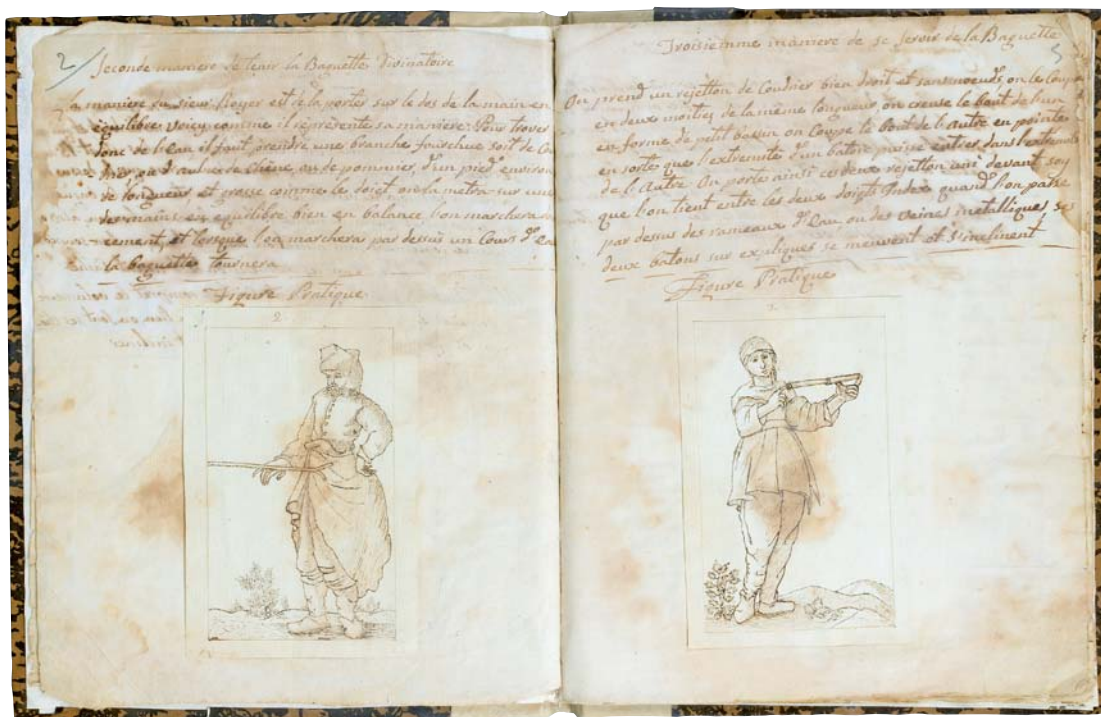 2
Seconde maniere de tenir la Baguette Divinatoire
La maniere du sieur Royer est de la porter sur le dos de la main en
équilibre voicy comme il represente sa maniere: Pour trouver
donc de l'eau il faut prendre une branche fourchue soit de
ou d'aulne de Chêne, ou de pommier, d'un pied environ
de longueur, et grosse comme le doigt on la metra sur une
des mains en equilibre bien en balance l'on marchera
cement, et lorsque l'on marchera par dessus un Cours d'Eau
la baguette tournera
Figure Pratique
2.
Troisiemme maniere de se servir de la Baguette
On prend un rejetton de Coudrier bien droit et sans noeuds, on le Coupe
en deux moities de la même longueur on creuse le bout de l'un
en forme de petit bassin on Coupe le bout de l'autre en pointe
en sorte que l'extremité d'un batton puisse entrer dans l'extremité
de l'Autre On porte ainsi ces deux rejetton ainsi devant soy
que l'on tient entre les deux doigts Index quand l'on passe
par dessus des rameaux d'Eau ou des veines metalliques, ses
deux batons sur expliques se meuvent et s'inclinent
Figure Pratique
3.